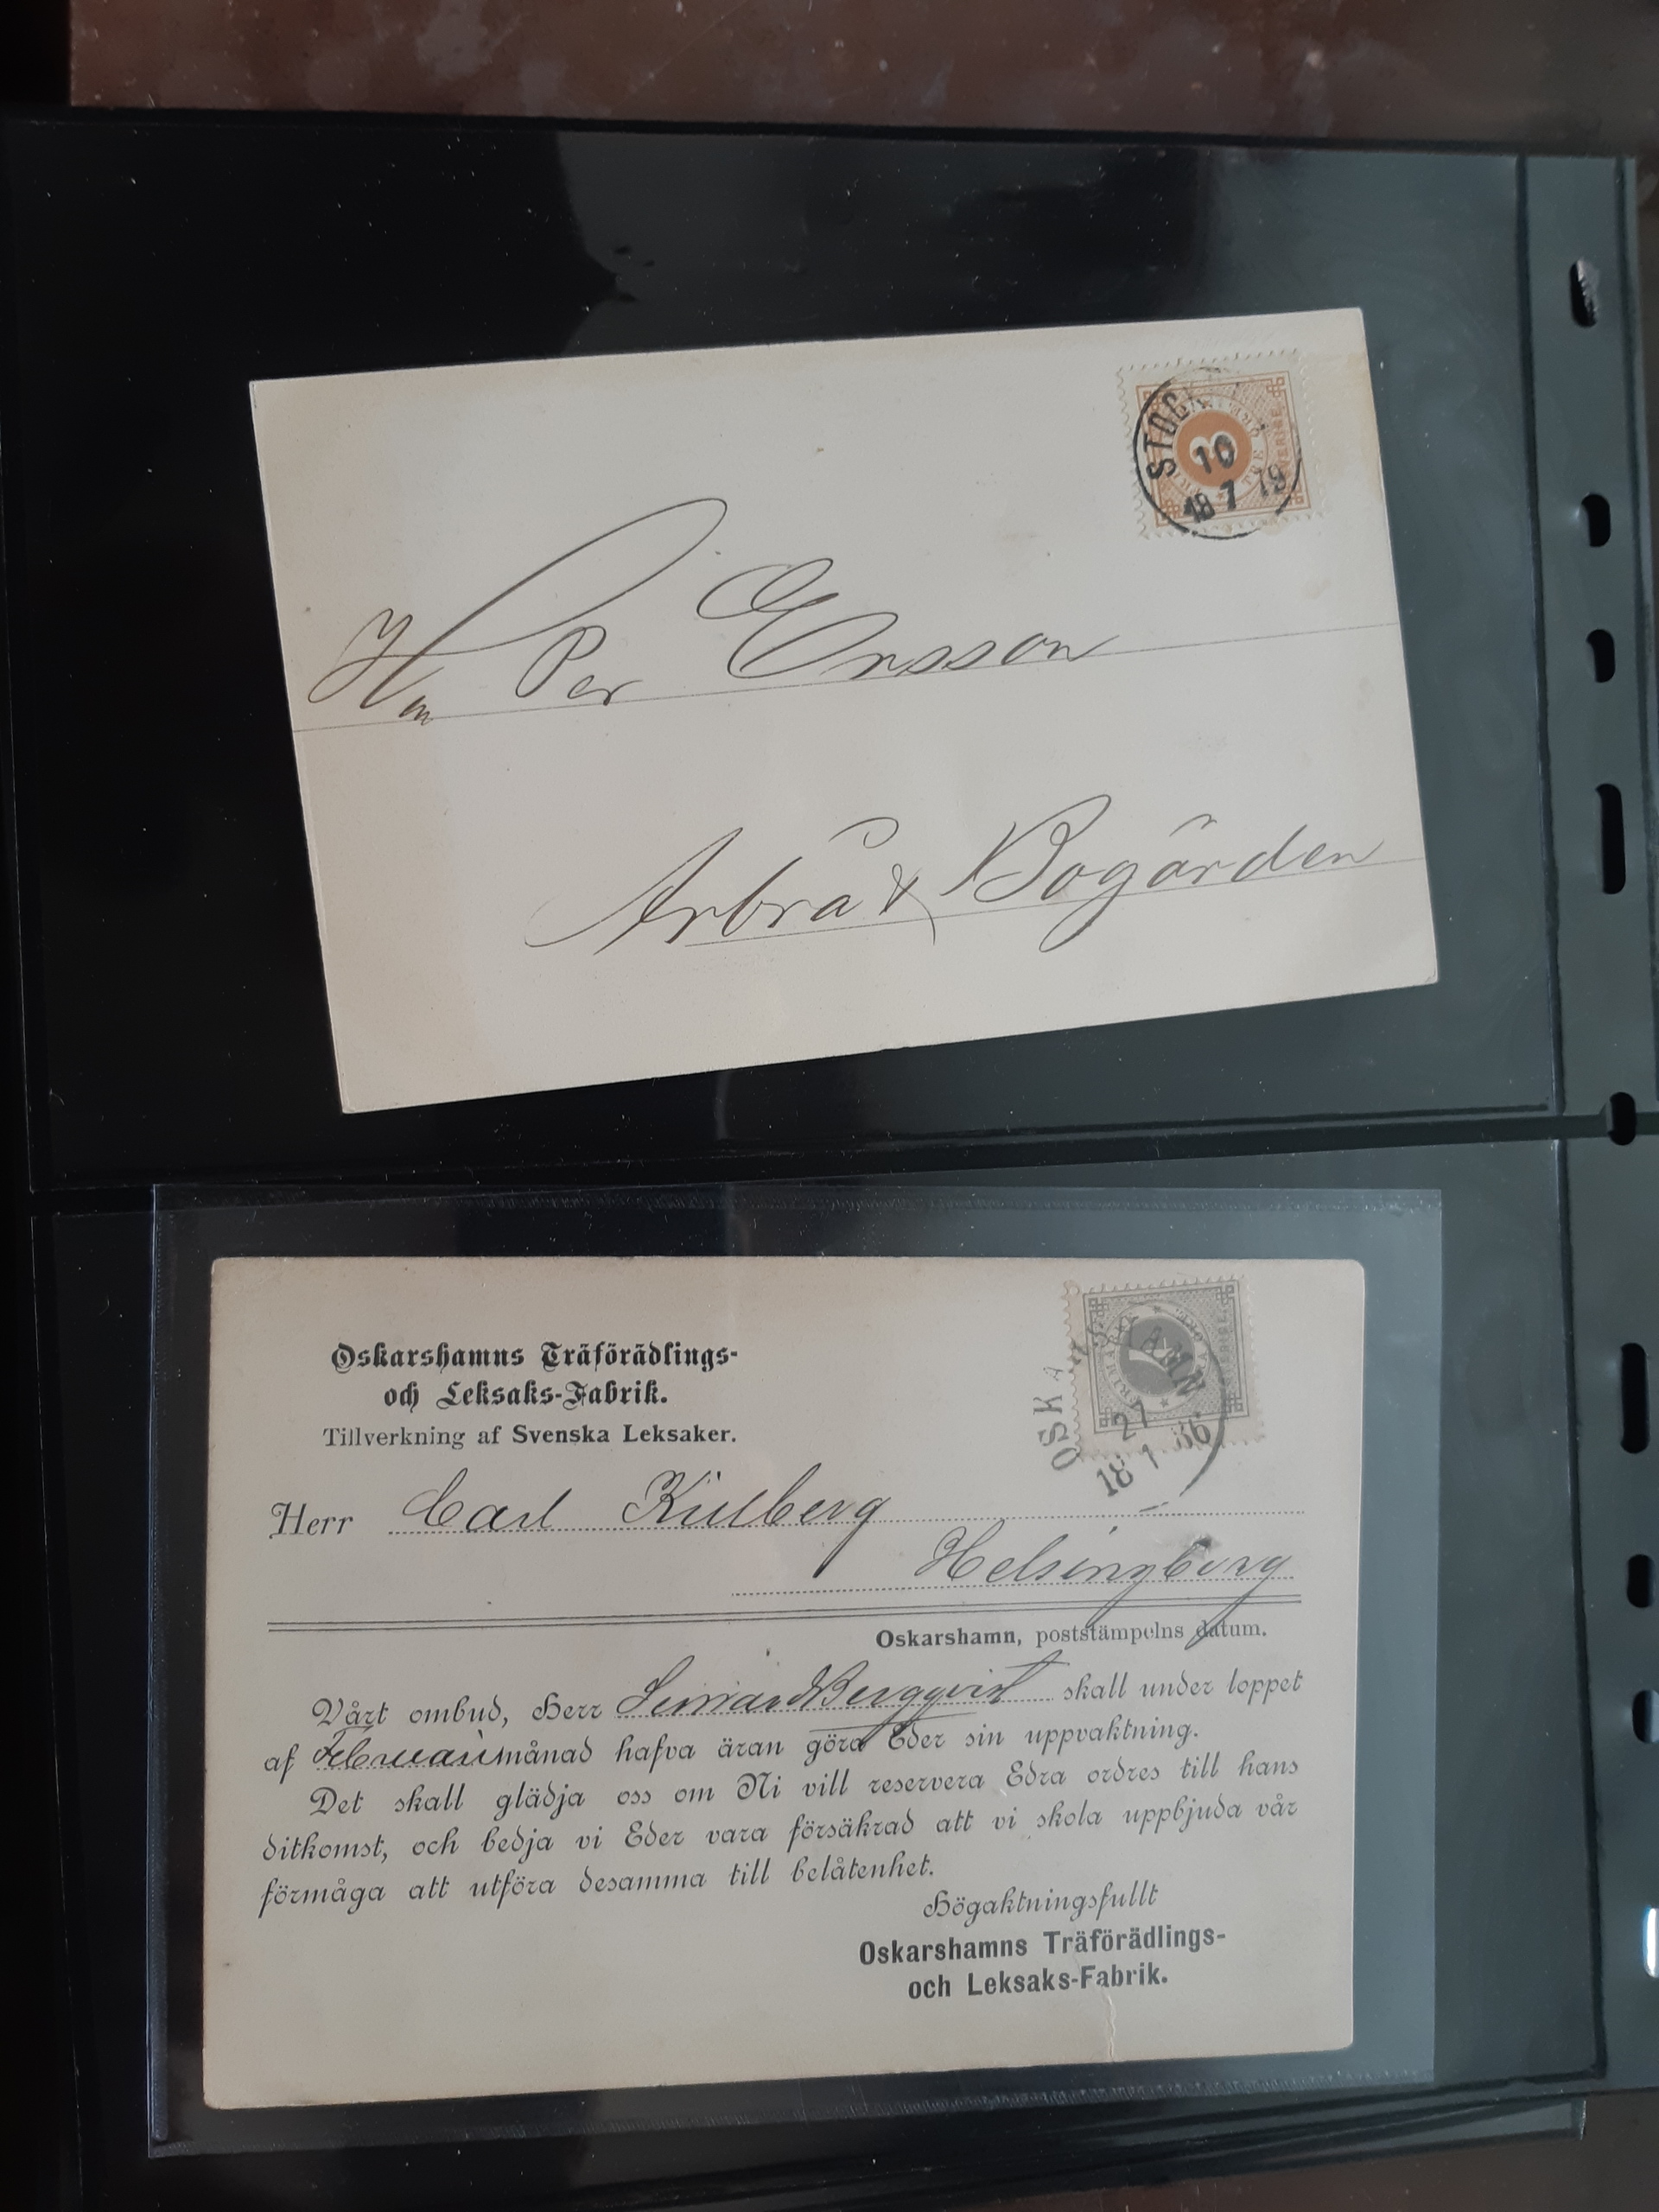 STOCK
10
18 7 19
3
SVERIGE
Hrn Per Ersson
Arbrå & Bogården
Oskarshamns Träförädlings-
och Leksaks-Fabrik.
Tillverkning af Svenska Leksaker.
OSKARSHAMN
27
18 1 86
FRIMÄRKE
SVERIGE
Herr Carl Kullberg
Helsingborg
Oskarshamn, poststämpelns datum.
Vårt ombud, Herr Bergqvist skall under loppet
af Februari månad hafva äran göra Eder sin uppvaktning.
Det skall glädja oss om Ni vill reservera Edra ordres till hans
ditkomst, och bedja vi Eder vara försäkrad att vi skola uppbjuda vår
förmåga att utföra desamma till belåtenhet.
Högaktningsfullt
Oskarshamns Träförädlings-
och Leksaks-Fabrik.